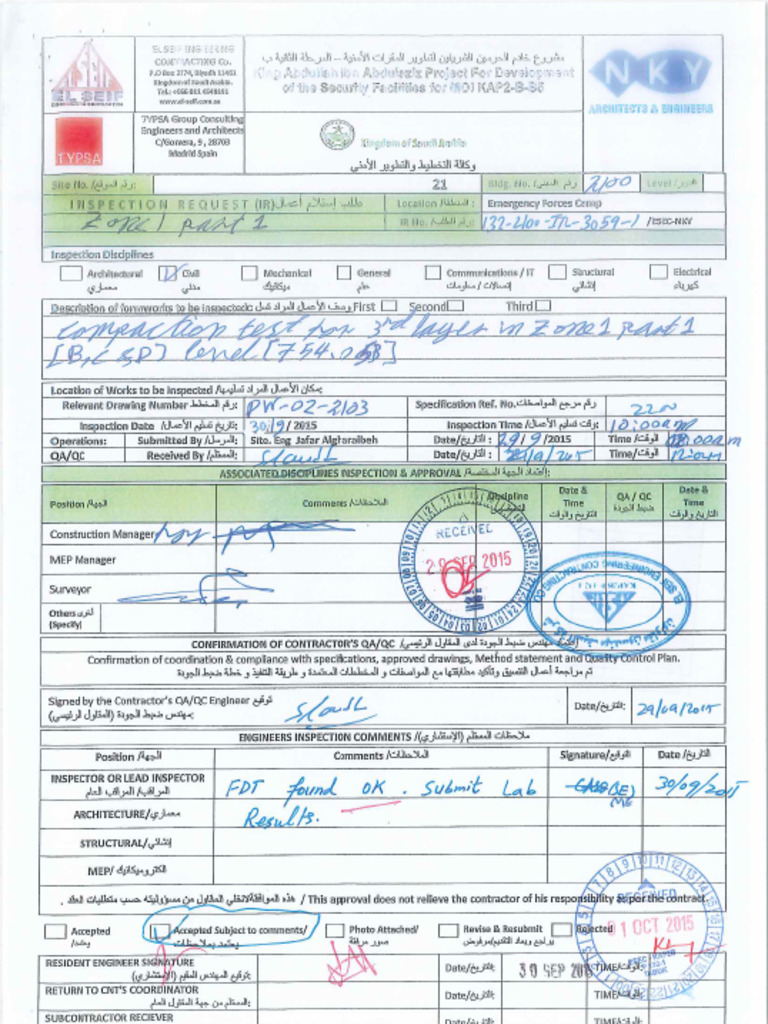 EL SEIF ENGINEERING
CONTRACTING Co.
P.O Box 2774, Riyadh 11461
Kingdom of Saudi Arabia.
www.el-seif.com.sa
EL SEIF
مشروع خادم الحرمين الشريفين لتطوير المقرات الأمنية – المرحلة الثانية ب
King Abdullah bin Abdulaziz Project For Development
of the Security Facilities for MOI KAP2-B-B5
NKY
ARCHITECTS & ENGINEERS
TYPSA
TYPSA Group Consulting
Engineers and Architects
C/Gomera, 9, 28703
Madrid Spain
Kingdom of Saudi Arabia
وكالة التخطيط والتطوير الأمني
Site No. /رقم الموقع: 21 Bldg. No. /رقم المبنى 2100 Level /الدور
INSPECTION REQUEST (IR) طلب إستلام أعمال Location /المنطقة: Emergency Forces Camp
Zone 1 part 1 IR No. /رقم الطلب: 132-2100-IR-3059-1 /ESEC-NKY
Inspection Disciplines
Architectural Civil Mechanical General Communications / IT Structural Electrical
معماري مدني ميكانيك عام إتصالات / معلومات إنشائي كهرباء
Description of formworks to be inspected: وصف الأعمال المراد First Second Third
Compaction test for 3rd layer in Zone 1 part 1
Location of Works to be Inspected /مكان الأعمال المراد تسليمها:
Relevant Drawing Number /رقم المخطط: PW-02-2103 Specification Ref. No. رقم مرجع المواصفات: 2200
Inspection Date /تاريخ تسليم الأعمال: 30/9/2015 Inspection Time /وقت تسليم الأعمال: 10:00am
Operations: Submitted By /المرسل: Site. Eng Jafar Algharaibeh Date/التاريخ: 29/9/2015 Time /الوقت: 08:00am
QA/QC Received By /المستلم: Date/التاريخ: 29/9/2015 Time/الوقت:
ASSOCIATED DISCIPLINES INSPECTION & APPROVAL /اعتماد الجهة المختصة:
Position /الجهة Comments /الملاحظات Discipline Date & Time التاريخ والوقت QA / QC ضبط الجودة Date & Time التاريخ والوقت
Construction Manager
MEP Manager
Surveyor
Others أخرى
(Specify)
RECEIVED
29 SEP 2015
EL SEIF ENGINEERING CONTRACTING CO.
CONFIRMATION OF CONTRACTOR'S QA/QC
Confirmation of coordination & compliance with specifications, approved drawings, Method statement and Quality Control Plan.
تم مراجعة أعمال التنسيق وتأكيد مطابقتها مع المواصفات و المخططات المعتمدة و طريقة التنفيذ و خطة ضبط الجودة
Signed by the Contractor's QA/QC Engineer توقيع
مهندس ضبط الجودة (المقاول الرئيسي):
Date/التاريخ: 29/09/2015
ENGINEERS INSPECTION COMMENTS/ملاحظات المعلم (الإستشاري)
Position /الجهة Comments /الملاحظات Signature/التوقيع Date /التاريخ
INSPECTOR OR LEAD INSPECTOR FDT found OK. Submit Lab 30/09/2015
المراقب/ المراقب العام
ARCHITECTURE/معماري Results.
STRUCTURAL/إنشائي
MEP/ الكتروميكانيك
هذه الموافقة لاتخلي المقاول من مسؤوليته حسب متطلبات العقد . / This approval does not relieve the contractor of his responsibility as per the contract.
Accepted Accepted Subject to comments/ Photo Attached/ Revise & Resubmit Rejected
يعتمد/ يعتمد بملاحظات صور مرفقة يراجع ويعاد التقديم/مرفوض
RECEIVED
01 OCT 2015
RESIDENT ENGINEER SIGNATURE Date/التاريخ: 30 SEP 2015 TIME/الوقت:
توقيع المهندس المقيم (الإستشاري):
RETURN TO CNT'S COORDINATOR Date/التاريخ: TIME/الوقت:
المستلم من جهة المقاول العام
SUBCONTRACTOR RECIEVER Date/التاريخ: TIME/الوقت: